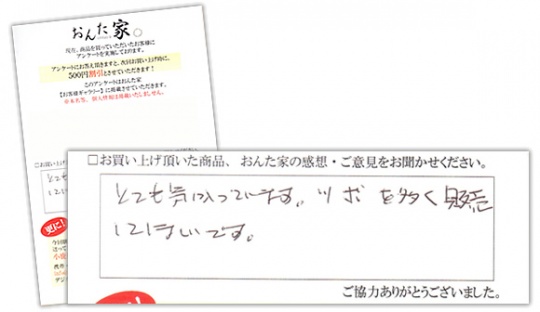 おんた家。
現在、商品を買っていただいたお客様に
アンケートを実施しております。
アンケートにお答え頂きますと、次回お買い上げ時に、
500円割引とさせていただきます！
このアンケートはおんた家
【お客様ギャラリー】に掲載させていただきます。
□お買い上げ頂いた商品、おんた家の感想・ご意見をお聞かせください。
とても気に入っています。ツボを多く販売
してほしいです。
ご協力ありがとうございました。
更に！